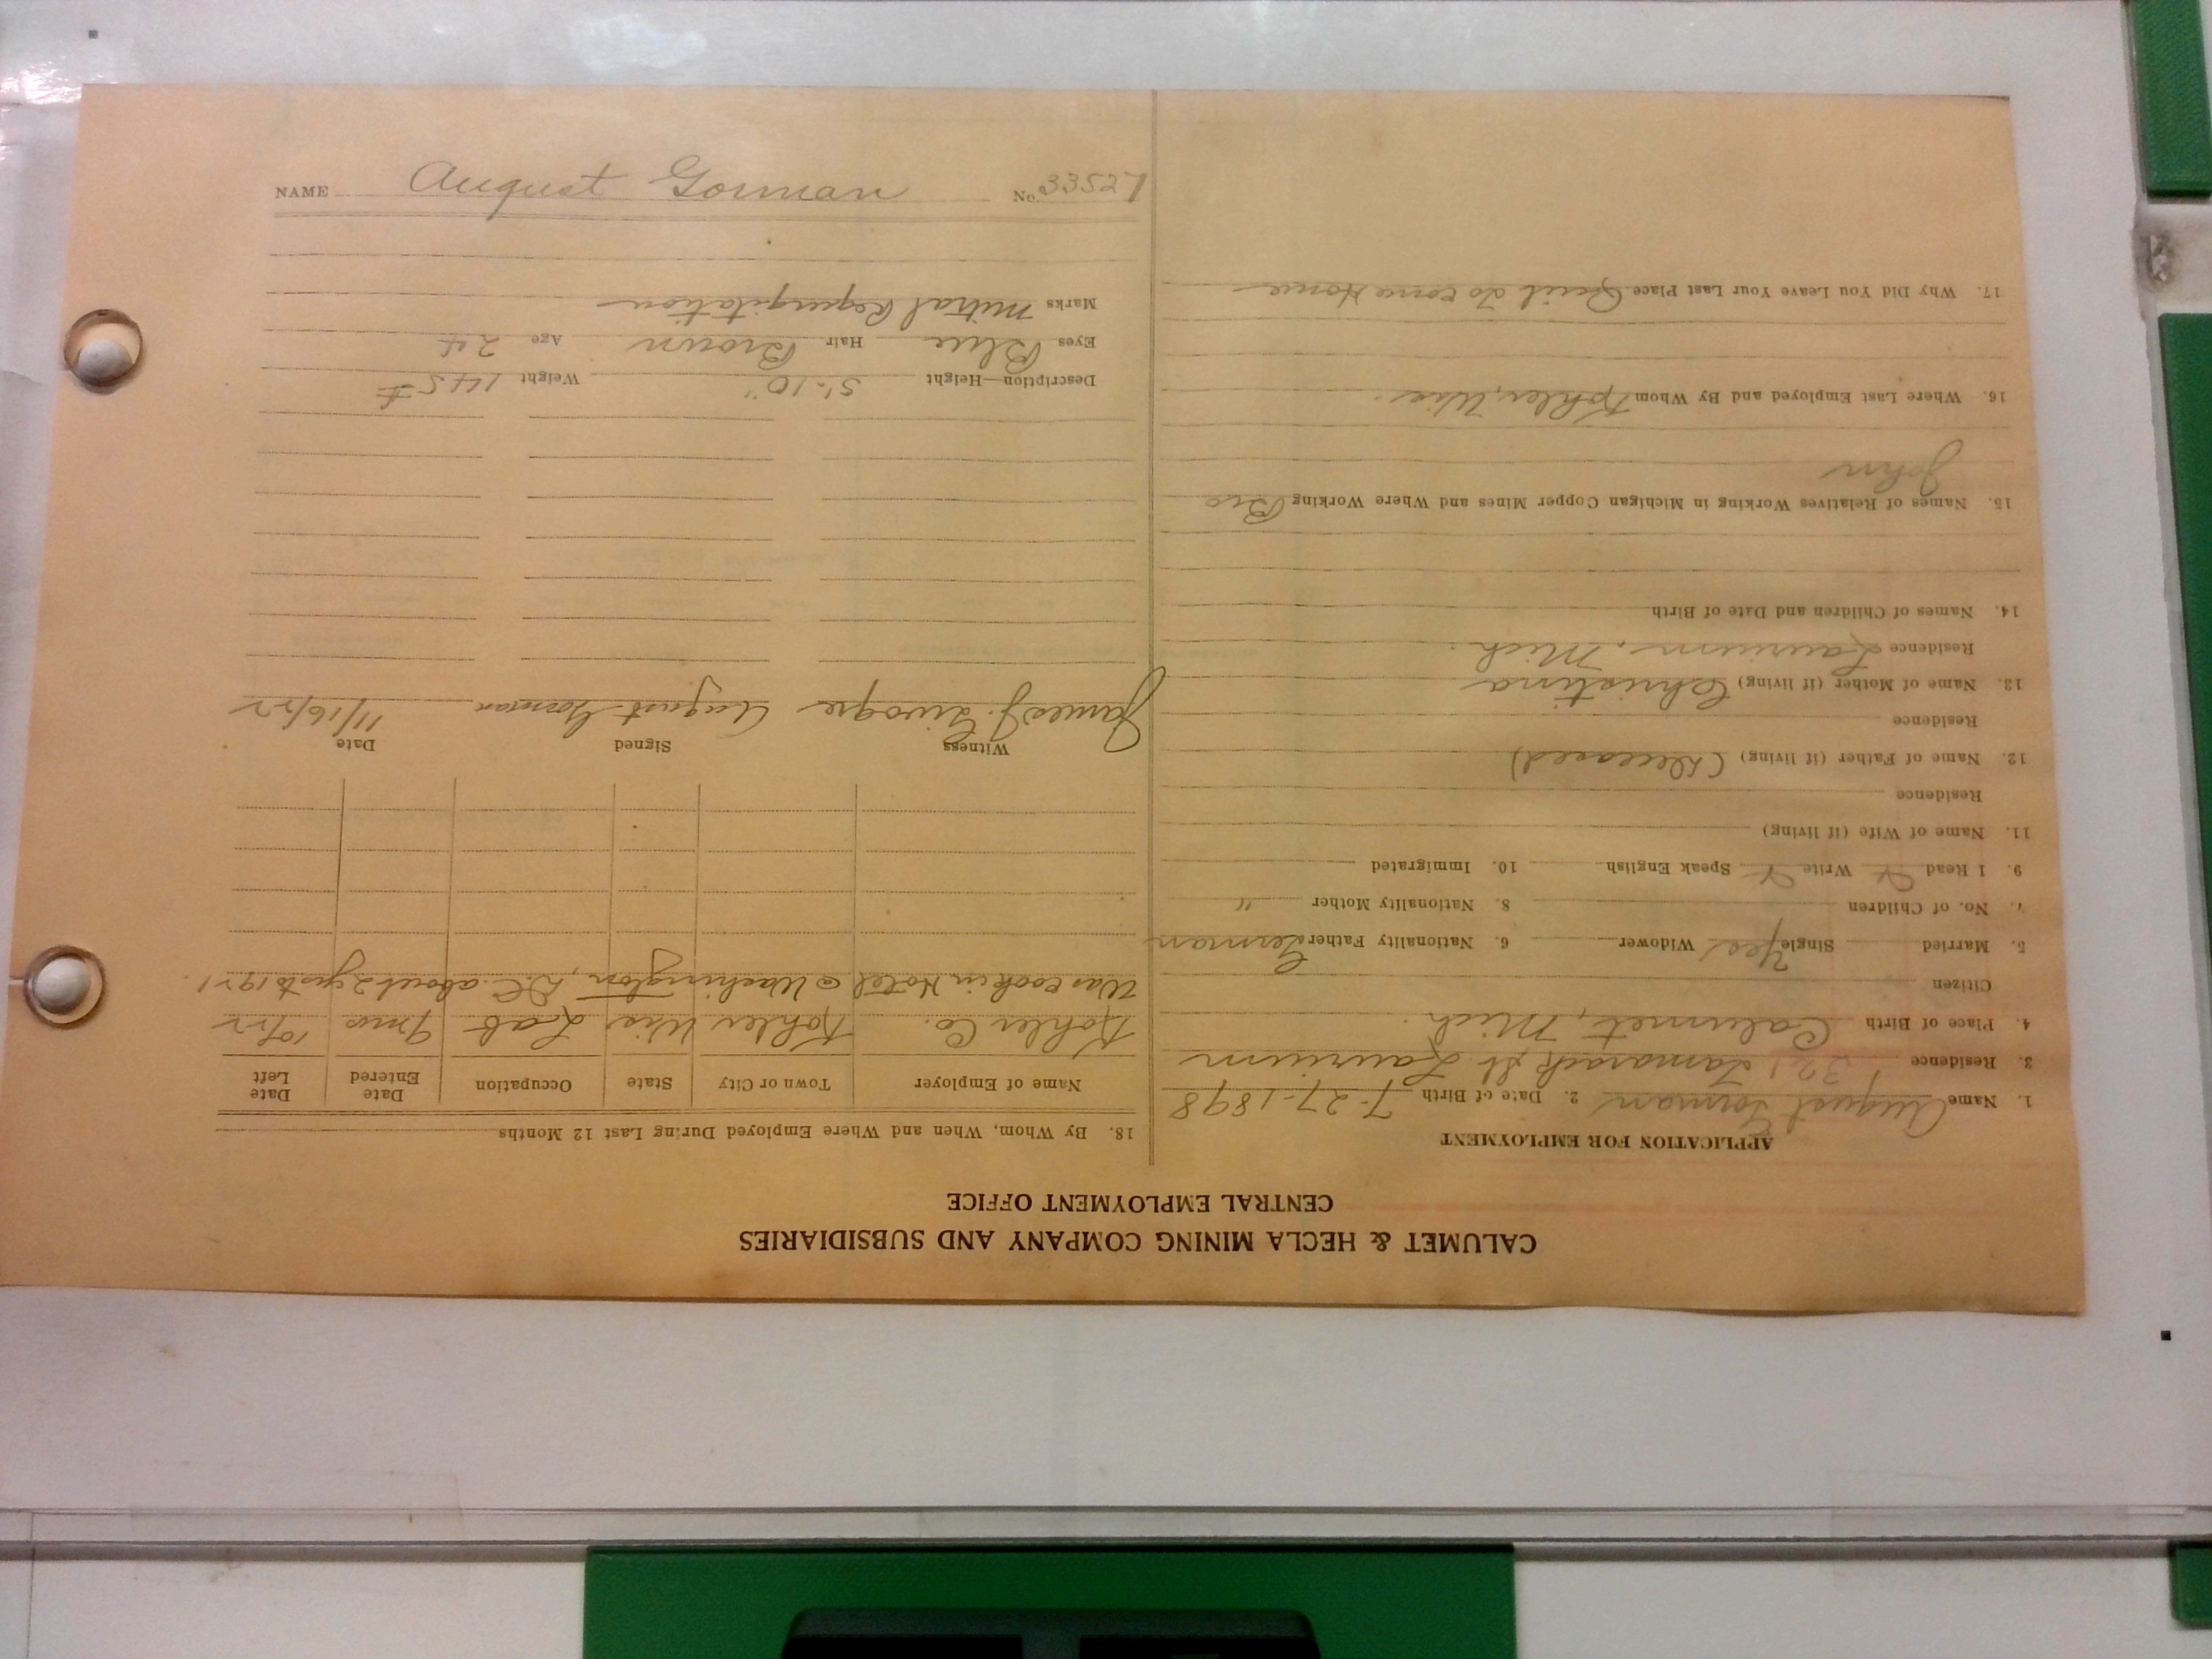 CALUMET & HECLA MINING COMPANY AND SUBSIDIARIES
CENTRAL EMPLOYMENT OFFICE
APPLICATION FOR EMPLOYMENT
1. Name August Gorman 2. Date of Birth 7-27-1898
3. Residence 321 Tamarack St. Laurium
4. Place of Birth Calumet, Mich.
Citizen
5. Married Single Yes Widower 6. Nationality Father German
7. No. of Children 8. Nationality Mother "
9. I Read Write Speak English 10. Immigrated
11. Name of Wife (if living)
Residence
12. Name of Father (if living) (Deceased)
Residence
13. Name of Mother (if living) Christina
Residence Laurium, Mich.
14. Names of Children and Date of Birth
15. Names of Relatives Working in Michigan Copper Mines and Where Working Bro
John
16. Where Last Employed and By Whom Kohler, Wis.
17. Why Did You Leave Your Last Place Quit to come Home
18. By Whom, When and Where Employed During Last 12 Months
Name of Employer Town or City State Occupation Date Entered Date Left
Kohler Co. Kohler Wis Lab 9 mos 10/22
Was cook in Hotel @ Washington, D.C. about 2 yrs to 1921
Witness Signed Date
James J. August Gorman 11/16/22
Description—Height 5'-10" Weight 145 #
Eyes Blue Hair Brown Age 24
Marks Mitral Regurgitation
NAME August Gorman No. 33527